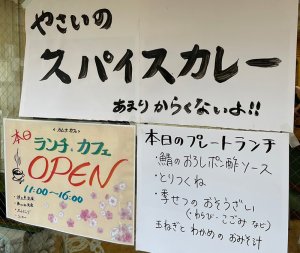 やさいの
スパイスカレー
あまり からくないよ!!
本日
ランチ カフェ
OPEN
11:00〜16:00
本日のプレートランチ
・鯖のおろしポン酢ソース
・とりつくね
・季せつのおそうざい
(わらび・こごみ など)
玉ねぎとわかめのおみそ汁